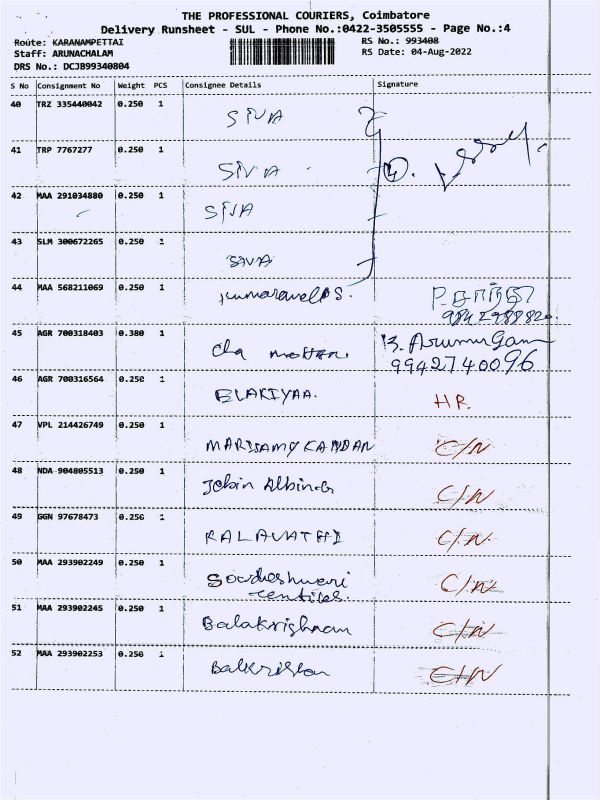 THE PROFESSIONAL COURIERS, Coimbatore
Delivery Runsheet - SUL - Phone No.:0422-3505555 - Page No.:4
Route: KARANAMPETTAI
RS No.: 993408
Staff: ARUNACHALAM
RS Date: 04-Aug-2022
DRS No.: DCJB99340804
S No Consignment No Weight PCS Consignee Details Signature
40 TRZ 335440042 0.250 1 SIVA
41 TRP 7767277 0.250 1 SIVA
42 MAA 291034880 0.250 1 SIVA
43 SLM 300672265 0.250 1 SIVA
44 MAA 568211069 0.250 1 Kumaravel P.S.
9842988820
45 AGR 700318403 0.380 1 Cha mohan. B. Arumugam
9942740096
46 AGR 700316564 0.250 1 ELAKIYAA. HR
47 VPL 214426749 0.250 1 MARISAMY KANDAN C/N
48 NDA 904805513 0.250 1 Jebin Albino C/N
49 GGN 97678473 0.250 1 KALAVATHI C/N
50 MAA 293902249 0.250 1 Sowdeshwari C/N
Textiles.
51 MAA 293902245 0.250 1 Balakrishnan C/N
52 MAA 293902253 0.250 1 Balkrishna C/N